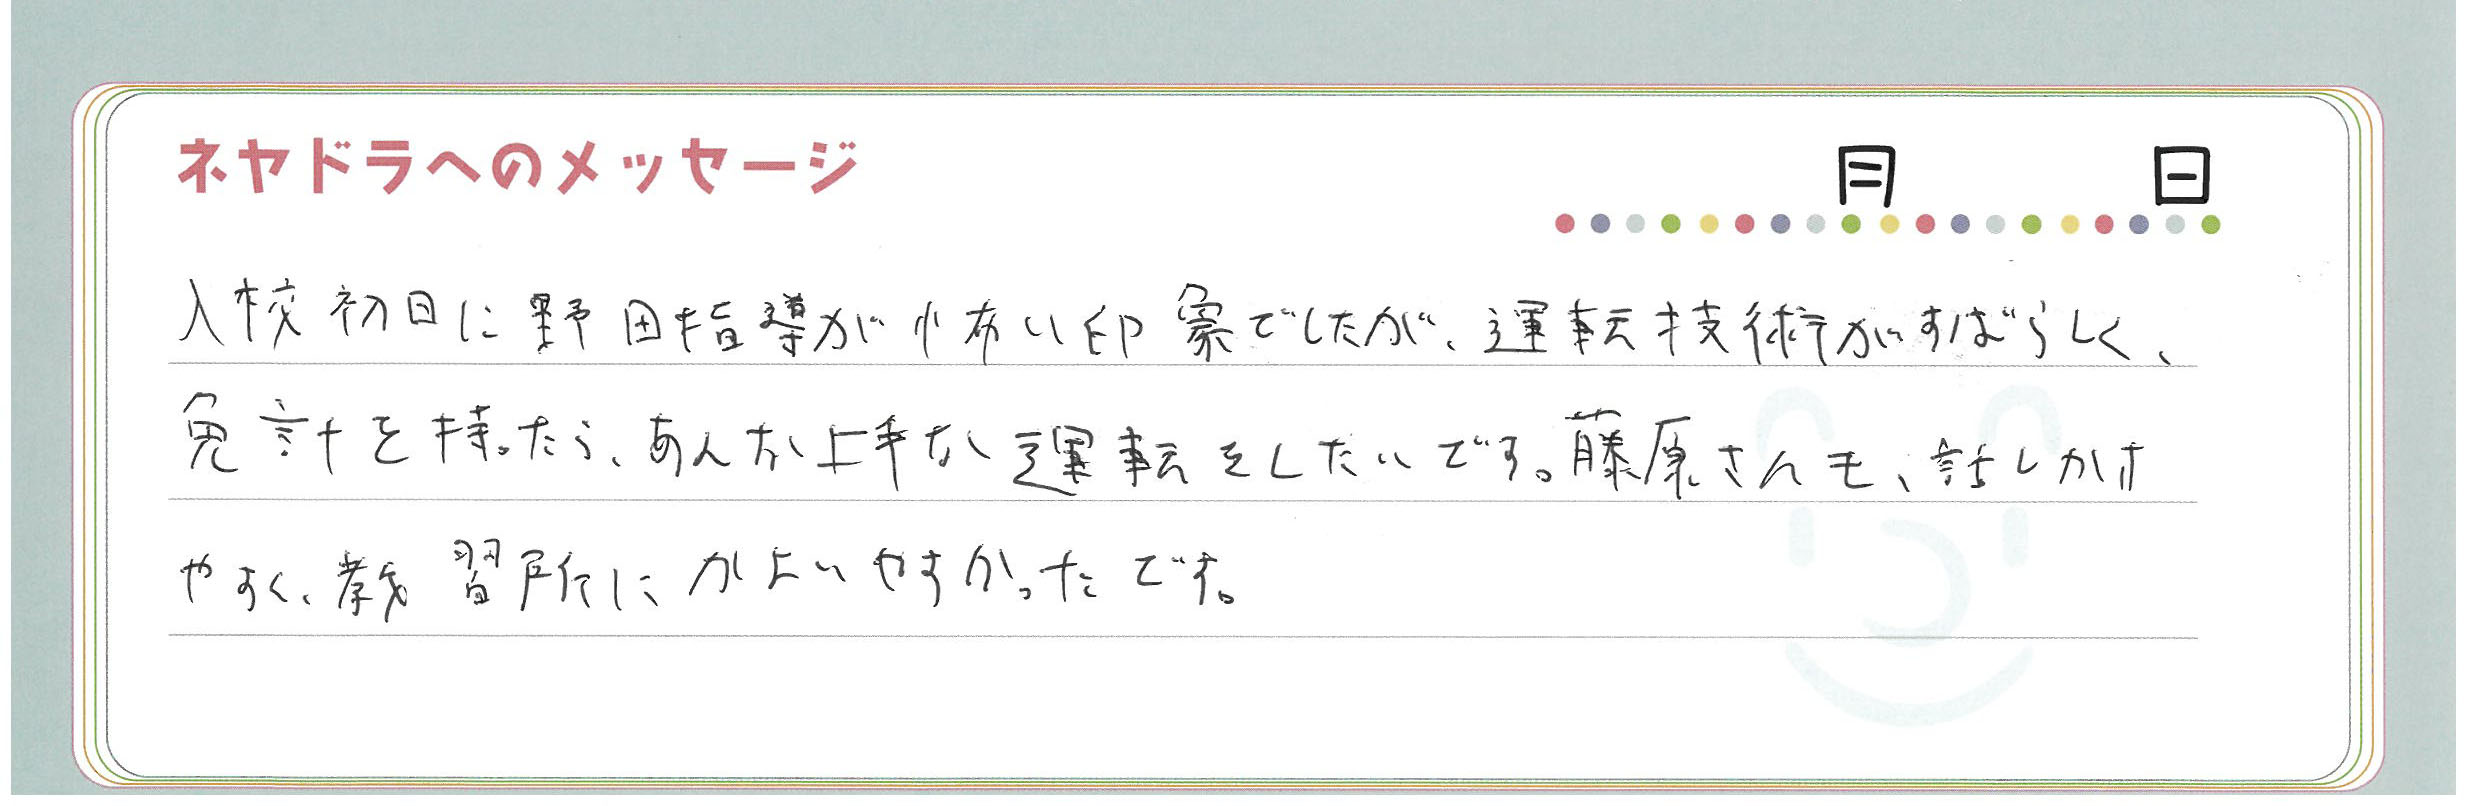 ネヤドラへのメッセージ
月 日
入校初日に野田指導が怖い印象でしたが、運転技術がすばらしく、
免許を持ったら、あんな上手な運転をしたいです。藤原さんも、話しかけ
やすく、教習所にかよいやすかったです。